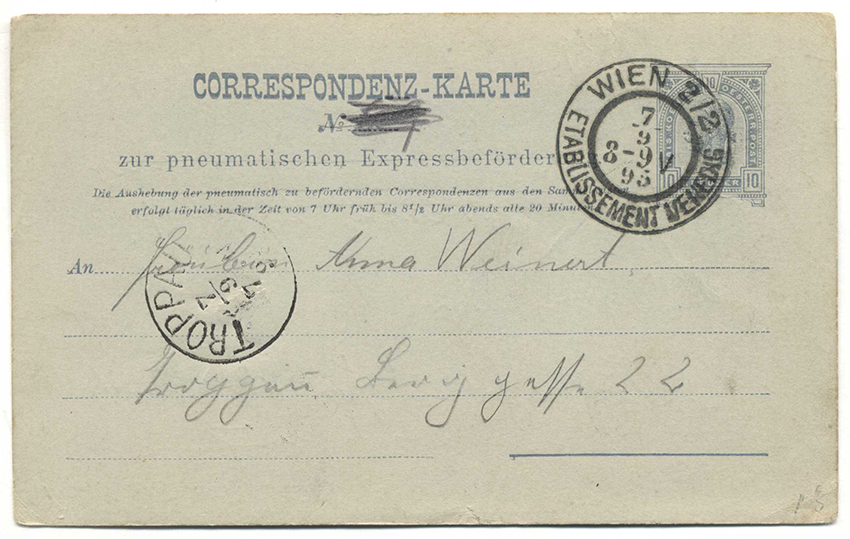 CORRESPONDENZ-KARTE
No
zur pneumatischen Expressbeförder
Die Aushebung der pneumatisch zu befördernden Correspondenzen aus den Sam
erfolgt täglich in der Zeit von 7 Uhr früh bis 8½ Uhr abends alle 20 Minu
WIEN 2/2
7
9
8-9V
95
ETABLISSEMENT VENEDIG
10
10
10
An Fräulein Anna Weinert,
TROPPAU
Troppau, Berggasse 22